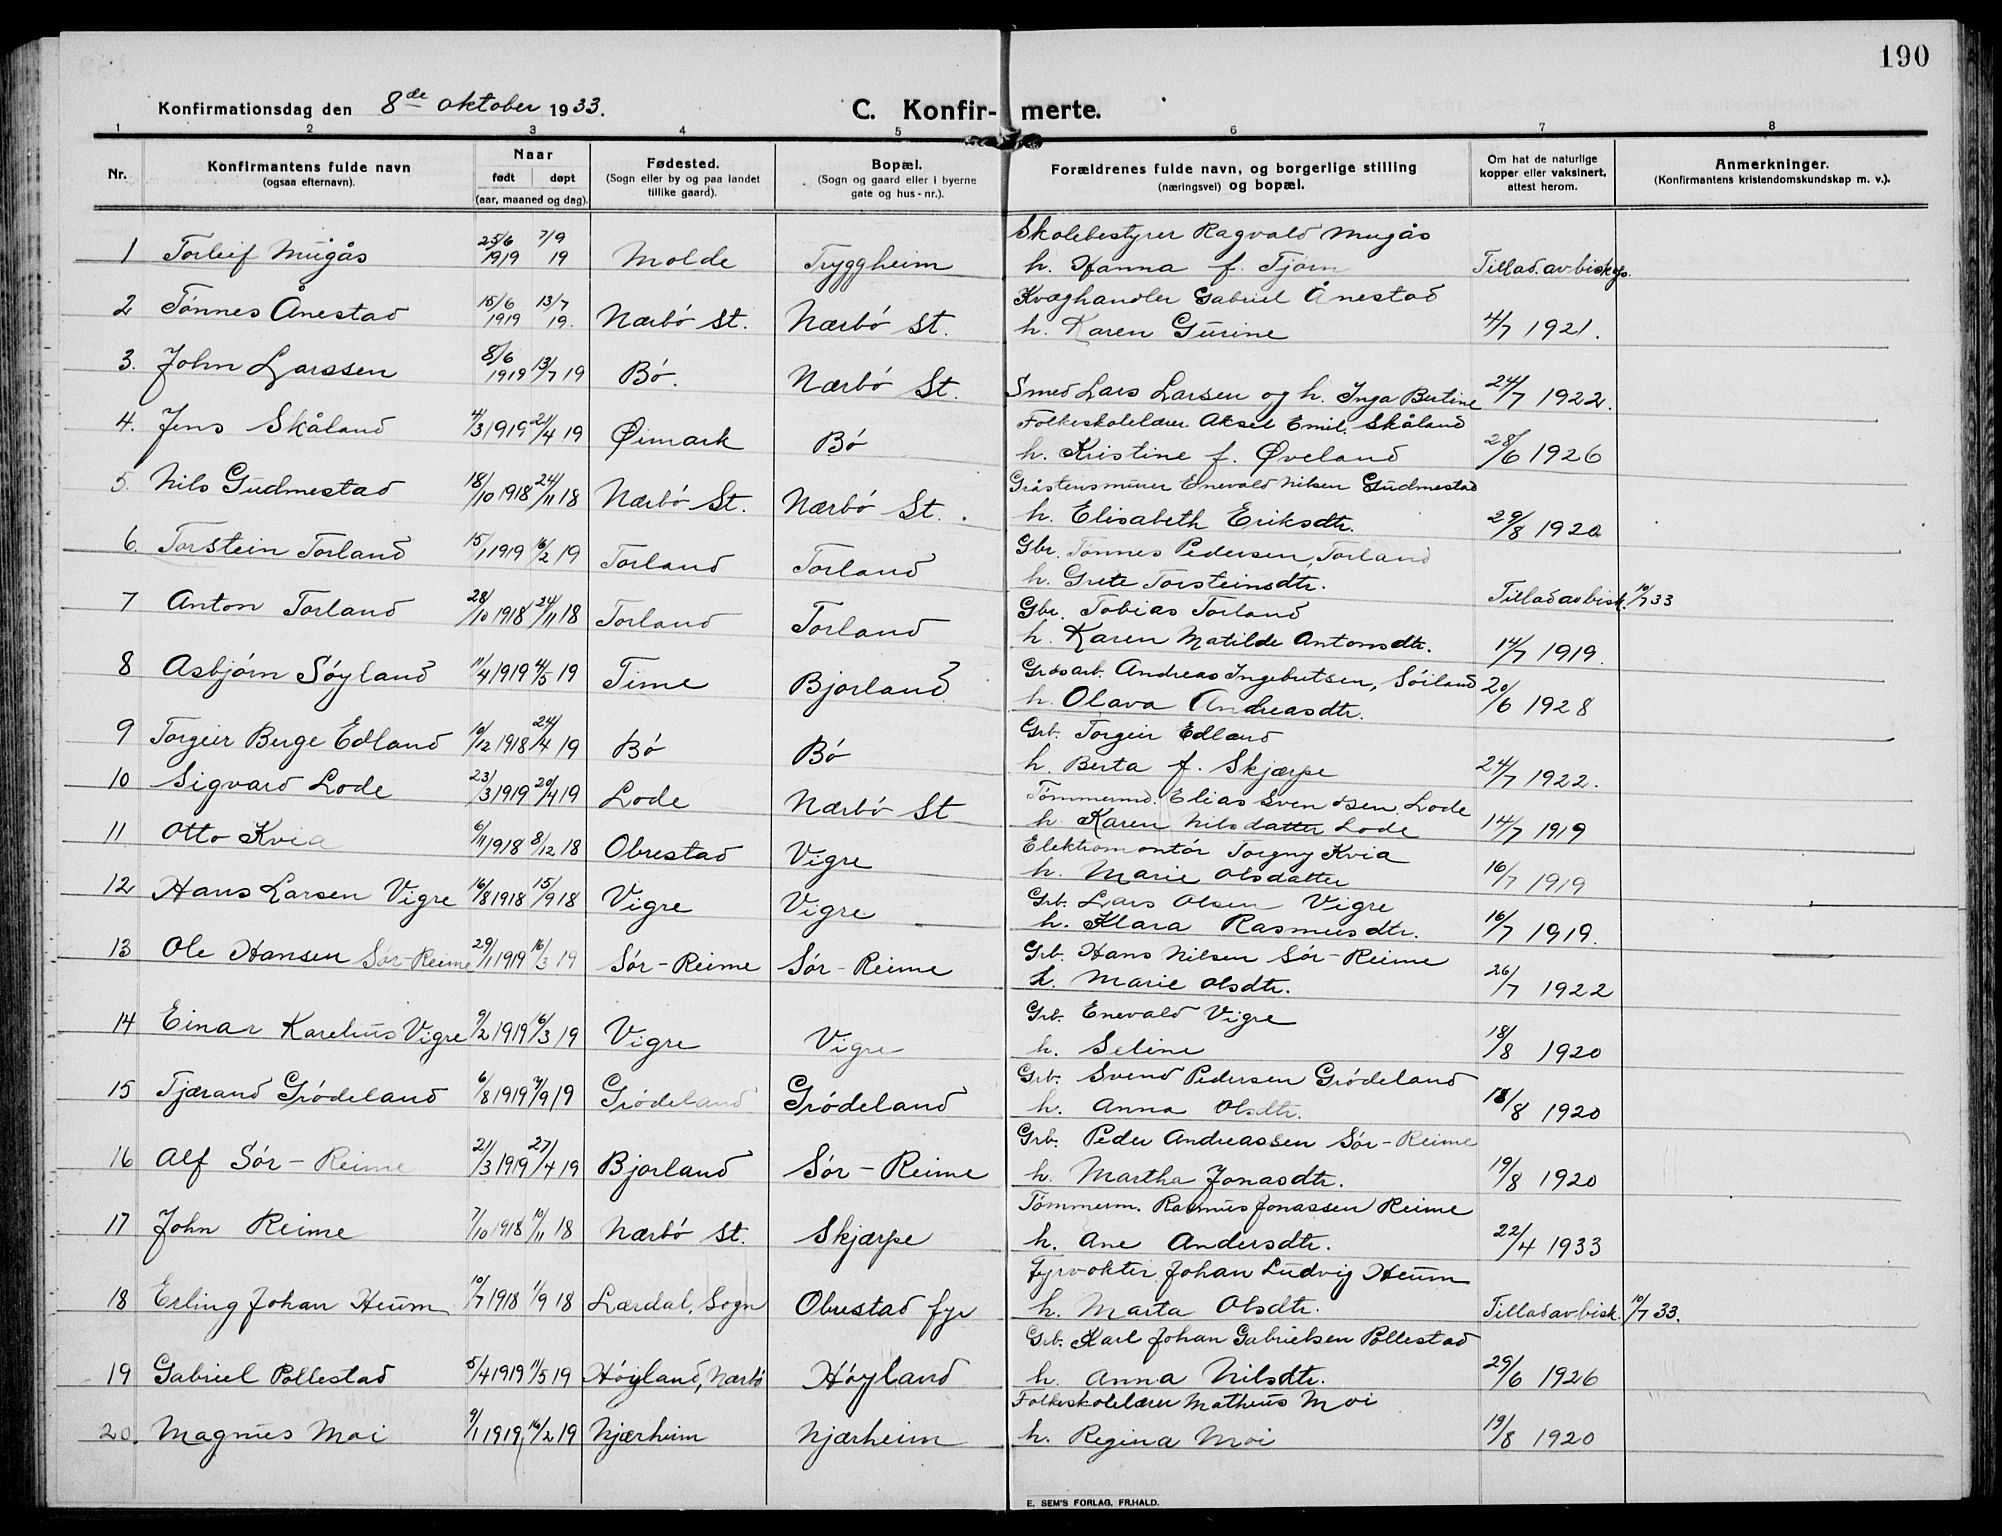 190
Konfirmationsdag den 8de oktober 1933.
C. Konfirmerte.
1 2 3 4 5 6 7 8
Nr.
Konfirmantens fulde navn
(ogsaa efternavn).
Naar
født døpt
(aar, maaned og dag).
Fødested.
(Sogn eller by og paa landet
tillike gaard).
Bopæl.
(Sogn og gaard eller i byerne
gate og hus-nr.).
Forældrenes fulde navn, og borgerlige stilling
(næringsvei) og bopæl.
Om hat de naturlige
kopper eller vaksinert,
attest herom.
Anmerkninger.
(Konfirmantens kristendomskundskap m. v.).
Skolebestyrer Ragvald Mugås
1 Torleif Mugås 25/6 1919 7/9 19 Molde Tryggheim h. Hanna f. Tjørn Tillad. av biskop.
Kvæghandler Gabriel Ånestad
2 Tønnes Ånestad 15/6 1919 13/7 19. Nærbö St. Nærbö St. h. Karen Gurine 4/7 1921.
3. John Larssen 8/6 1919 13/7 19 Bö. Nærbö St. Smed Lars Larsen og h. Inga Bertine 24/7 1922.
Folkeskolelærer Aksel Emil Skåland
4. Jens Skåland 4/3 1919 21/4 19 Øimark Bö h. Kristine f. Øveland 28/6 1926
Gråstensmurer Enevald Nilsen Gudmestad
5. Nils Gudmestad 18/10 1918 24/11 18 Nærbö St. Nærbö St. h. Elisabeth Eriksdtr. 29/8 1920
Gbr. Tönnes Pedersen, Torland
6. Torstein Torland 15/1 1919 16/2 19 Torland Torland h. Grete Torsteinsdtr. Tillad av bisk. 10/7 33
Gbr. Tobias Torland
7 Anton Torland 28/10 1918 24/11 18 Torland Torland h. Karen Matilde Antonsdtr. 14/7 1919.
Grdsarb. Andreas Ingebretsen, Söiland
8 Asbjörn Söyland 11/4 1919 4/5 19 Time Bjorland. h. Olava Andreasdtr. 20/6 1928
Grb. Torgeir Edland
9 Torgeir Berge Edland 10/12 1918 24/4 19 Bö Bö h. Berta f. Skjærpe 24/7 1922.
Tömmermd. Elias Svendsen Lode
10 Sigvard Lode 23/3 1919 20/4 19 Lode Nærbö St h. Karen Nilsdatter Lode 14/7 1919
Elektromontör Torgny Kvia
11 Otto Kvia 6/11 1918 8/12 18 Obrestad Vigre h. Marie Olsdatter 16/7 1919
Grb. Lars Olsen Vigre
12 Hans Larsen Vigre 16/8 1918 15/9 18 Vigre Vigre h. Klara Rasmusdtr. 16/7 1919.
Grb. Hans Nilsen Sör-Reime
13 Ole Hansen Sör-Reime 29/1 1919 16/3 19 Sör-Reime Sör-Reime h. Marie Olsdtr. 26/7 1922
Grb. Enevald Vigre
14 Einar Karelius Vigre 9/2 1919 16/3 19 Vigre Vigre h. Seline 18/8 1920
Grb. Svend Pedersen Grödeland
15 Tjærand Grödeland 6/8 1919 7/9 19 Grödeland Grödeland h. Anna Olsdtr. 18/8 1920
Grb. Peder Andreassen Sör-Reime
16 Alf Sör-Reime 21/3 1919 27/4 19 Bjorland Sör-Reime h. Martha Jonasdtr. 19/8 1920
Tömmerm. Rasmus Jonassen Reime
17 John Reime 7/10 1918 10/11 18 Nærbö St. Skjærpe h. Ane Andersdtr. 22/4 1933
Fyrvokter Johan Ludvig Heum
18 Erling Johan Heum 10/7 1918 1/9 18 Lærdal, Sogn Obrestad fyr h. Marta Olsdtr. Tillad av bisk. 10/7 33.
Grb. Karl Johan Gabrielsen Pollestad
19 Gabriel Pollestad 5/4 1919 11/5 19 Höyland, Nærbö Höyland h. Anna Nilsdtr. 29/6 1926
Folkeskolelærer Matheus Moi
20. Magnus Moi 9/1 1919 16/2 19 Njærheim Njærheim h. Regina Moi 19/8 1920
E. SEM'S FORLAG, FR.HALD.